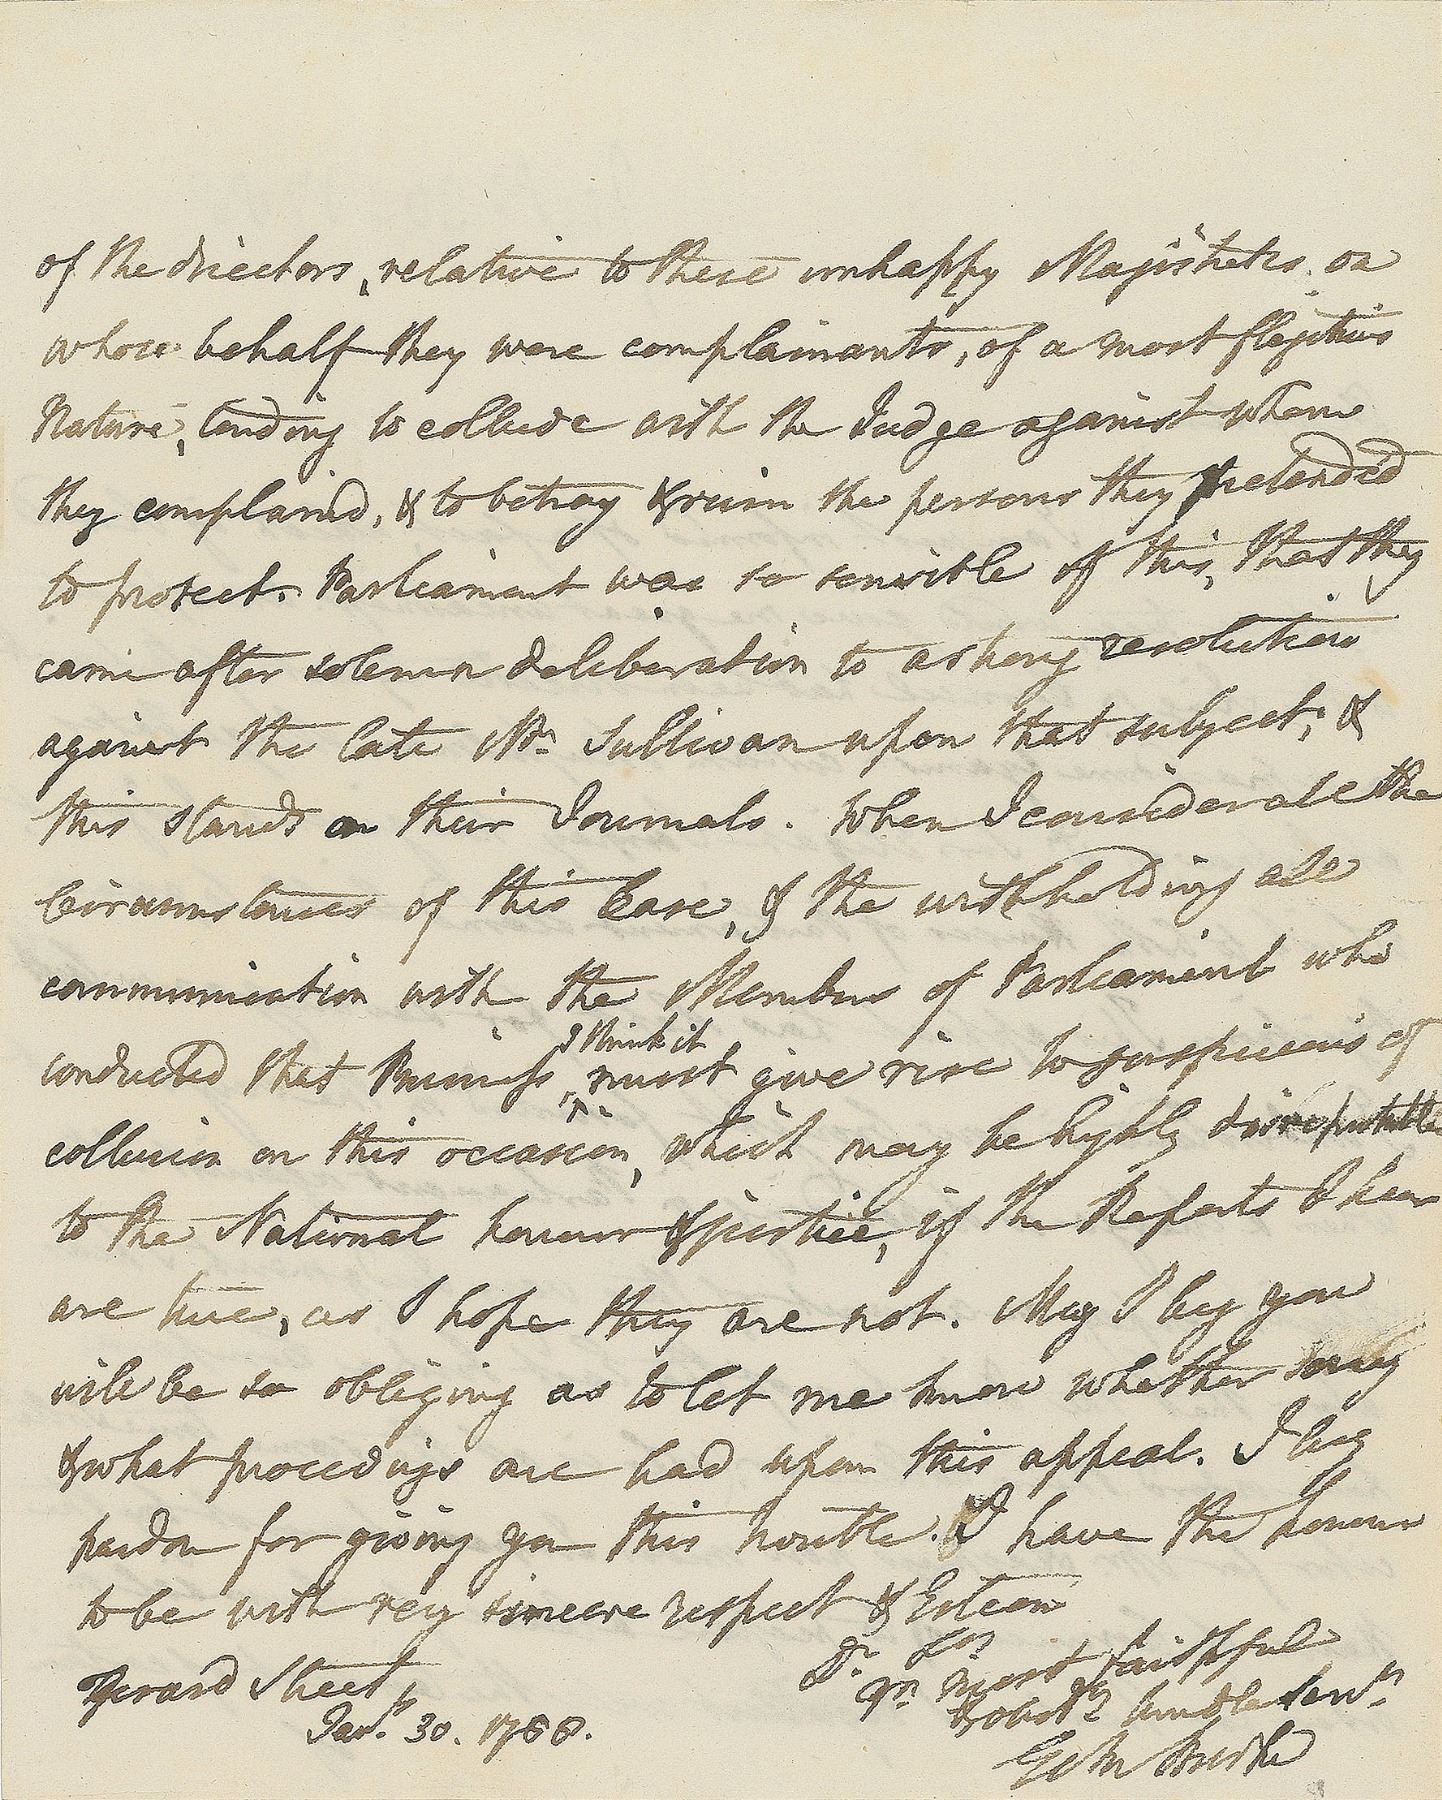 of the directors, relative to these unhappy Magistrates on
whose behalf they were complainants, of a most flagitious
Nature, tending to collude with the Judge against whom
they complained, & to betray & ruin the persons they pretended
to protect. Parliament was so sensible of this, that they
came after solemn deliberation to a strong resolution
against the late Mr. Sullivan upon that subject; &
this stands on their Journals. When I consider all the
Circumstances of this Case, & the withholding all
communication with the Members of Parliament who
conducted that Business, I think it must give rise to suspicions of
collusion on this occasion, which may be highly disreputable
to the National honour & justice, if the Reports I hear
are true, as I hope they are not. May I beg you
will be so obliging as to let me know whether any
& what proceedings are had upon this appeal. I beg
pardon for giving you this trouble. I have the honour
to be with very sincere respect & Esteem
Dr Sir
Gerard Street yr most faithful
Jany. 30. 1788. & obedt humble servt
Edm Burke